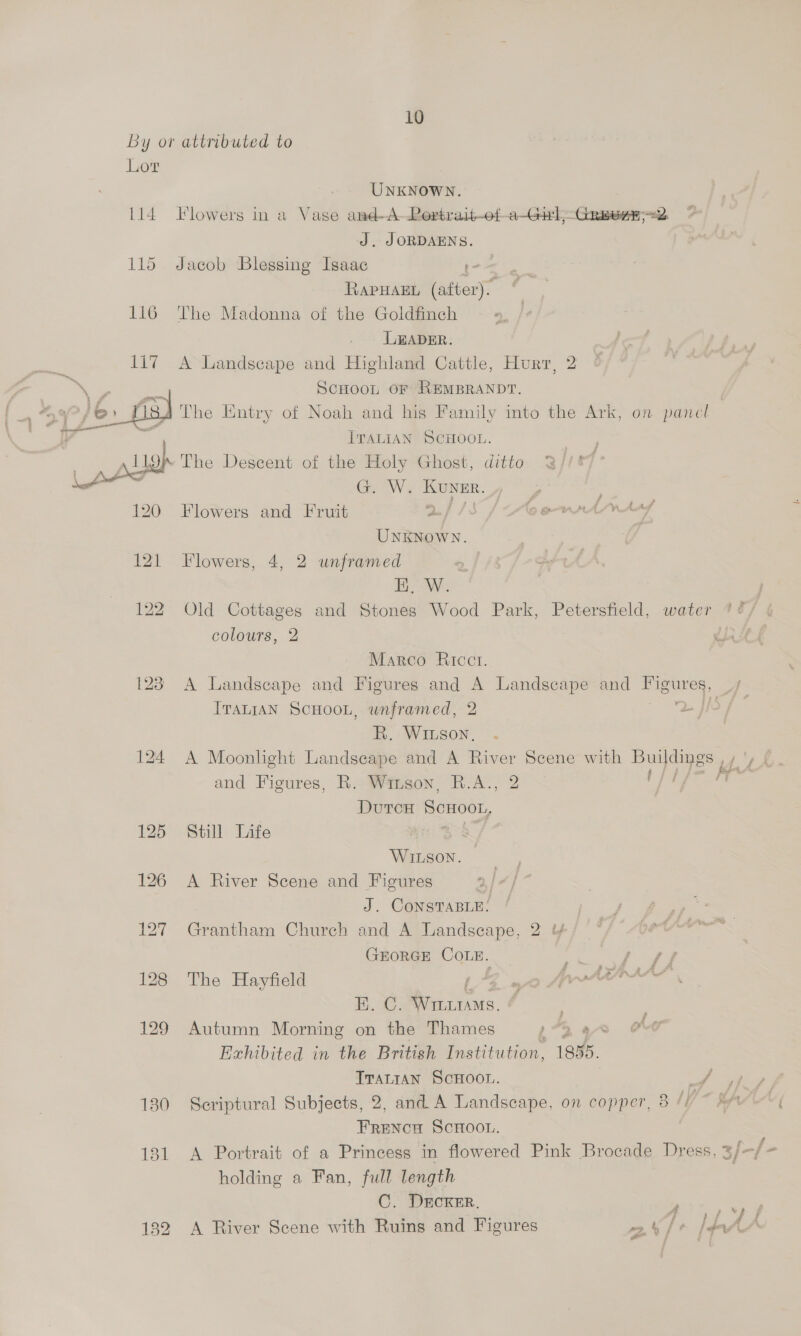 10
By or attributed to
Lot
Unknown.
114 Flowers in a Vase and A Portrait of a Girl, Greuze, 2
J. Jordaens.
115 Jacob Blessing Isaac
Raphael (after).
116 The Madonna of the Goldfinch
Leader.
117 A Landscape and Highland Cattle, Hurt, 2
School of Rembrandt.
118 The Entry of Noah and his Family into the Ark, on panel
Italian School.
119 The Descent of the Holy Ghost, ditto
G. W. Kuner.
120 Flowers and Fruit
Unknown.
121 Flowers, 4, 2 unframed
E. W.
122 Old Cottages and Stones Wood Park, Petersfield, water
colours, 2
Marco Ricci.
123 A Landscape and Figures and A Landscape and Figures,
Italian School, unframed, 2
R. Wilson.
124 A Moonlight Landscape and A River Scene with Buildings
and Figures, R. Wilson, R.A., 2
Dutch School,
125 Still Life
Wilson.
126 A River Scene and Figures
J. Constable.
127 Grantham Church and A Landscape, 2
George Cole.
128 The Hayfield
E. C. Williams.
129 Autumn Morning on the Thames
Exhibited in the British Institution, 1855.
Italian School.
130 Scriptural Subjects, 2, and A Landscape, on copper, 3
French School.
131 A Portrait of a Princess in flowered Pink Brocade Dress, 3/-/-
holding a Fan, full length
C. Decker.
132 A River Scene with Ruins and Figures